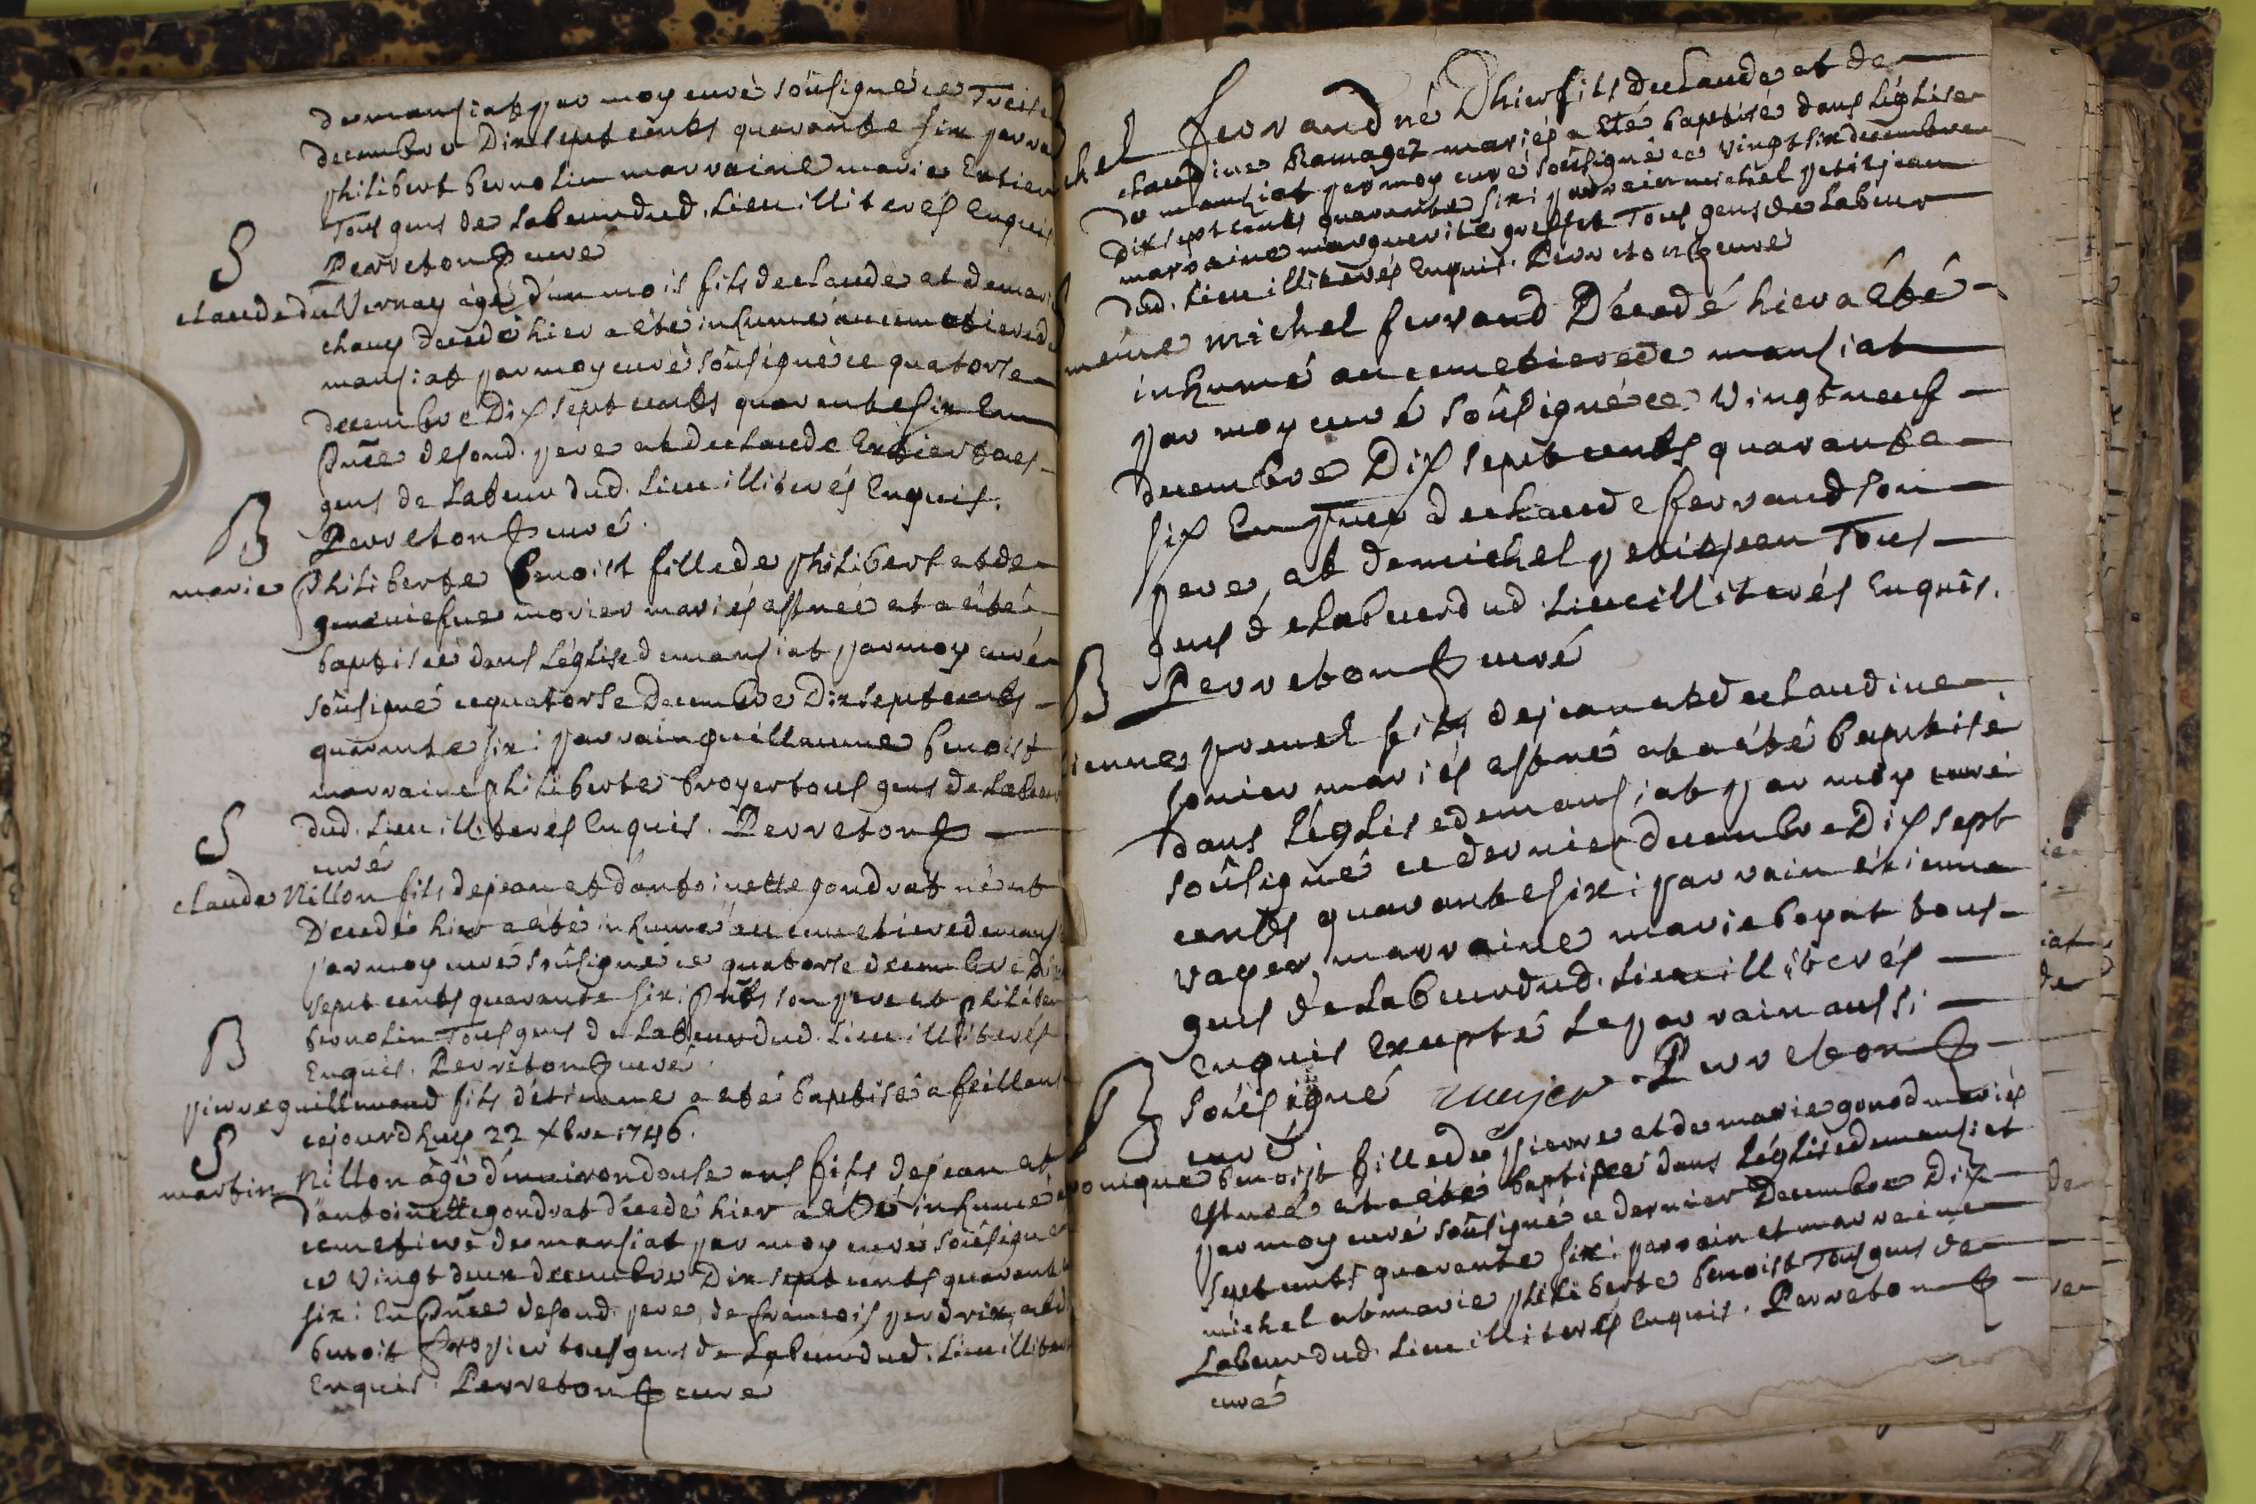 de mansiat par moy curé soûsigné ce Treise
decembre Dix sept cents quarante six parra
philibert bernolin marraine marie Extier
Tous gens de labeur dud. Lieu illiterés Enquis
Perreton curé
S
claude du Vernay âgé d'un mois fils de claude et de marie
chaus decedé hier a été inhumé au cemetiere de
mansiat par moy curé soûsigné ce quatorse
decembre Dix sept cents quarante six En
Pñce desond. pere et de claude Extier tous
gens de Labeur dud. Lieu illiterés Enquis.
Perreton curé.
B
marie philiberte benoist fille de philibert et de
geneviefve morier mariés est née et a été
baptisée dans L'église de mansiat par moy curé
soûsigné ce quatorse Decembre Dix sept cents
quarante six : parrain guillaume benoist
marraine philiberte broyer tous gens de Labeur
dud. Lieu illiterés Enquis. Perreton
curé
S
claude Nillon fils de jean et d'antoinette gondrat né et
Decedé hier a été inhumé au cemetiere de mansi
par moy curé soûsigné ce quatorse decembre Dix
sept cents quarante six : Pñts son pere et philibert
bernolin Tous gens de Labeur dud. Lieu illiterés
Enquis. Perreton curé.
B
pierre guillemaud fils d'étienne a été baptisé a feillens
cejourd'huy 22 Xbre 1746.
S
martin Nillon âgé d'environ douse ans fils de jean et
d'antoinette gondrat décedé hier a été inhumé
cemetiere de mansiat par moy curé soûsigné
ce vingt deux decembre Dix sept cents quarante
six : En Pñce desond. pere, de francois perdrix, et d
benoit tous gens de Labeur dud. Lieu illiter
Enquis. Perreton curé
chel ferrand né D'hier fils de claude et de
claudine Ramagez mariés a été baptisé dans L'église
de mansiat par moy curé soûsigné ce vingt six decembre
Dix sept cents quarante six : parrain michel petitjean
marraine marguerite greffet Tous gens de Labeur
dud. Lieu illiterés Enquis. Perreton curé
meme michel ferrand Décedé hier a été
inhumé au cemetiere de mansiat
par moy curé soûsigné ce vingt neuf
decembre Dix sept cents quarante
six En de claude ferrand son
pere, et de michel petitjean Tous
gens de Labeur dud. Lieu illiterés Enquis.
Perreton curé
B
ienne prevel fils de jean et de claudine
sonier mariés est né et a été baptisé
dans L'église de mansiat par moy curé
soûsigné ce dernier decembre Dix sept
cents quarante six : parrain étienne
vayer, marraine marie boyat tous
gens de Labeur dud. Lieu illiterés
Enquis Excepté le parrain aussi
soûsigné Perreton
curé
B
onique benoist fille de pierre et de marie gonod mariés
est née et a été baptisée dans L'église de mansiat
par moy curé soûsigné ce dernier Decembre Dix
sept cents quarante six : parrain et marraine
michel et marie philiberte benoist Tous gens de
Labeur dud. Lieu illiterés Enquis. Perreton
curé